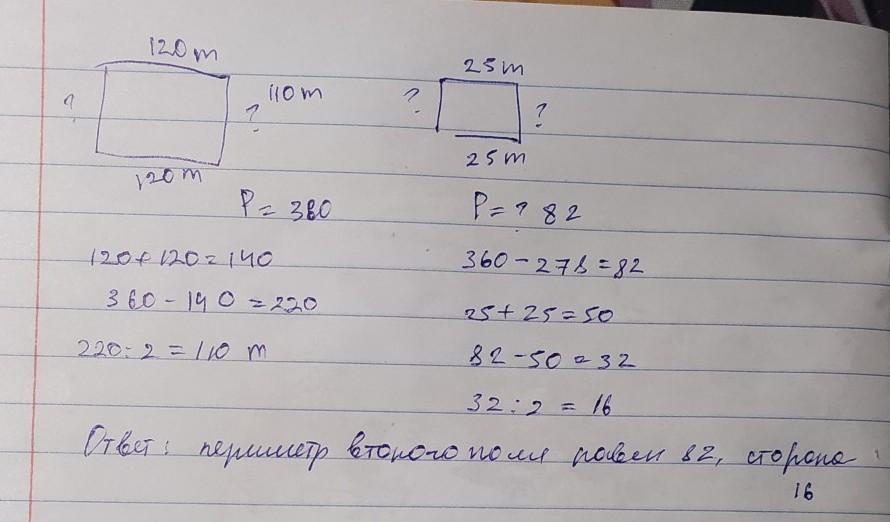 120 m
25 m
? ? 110 m
? ?
120 m
25 m
P = 360
P = ? 82
120 + 120 = 140
360 - 278 = 82
360 - 140 = 220
25 + 25 = 50
220 : 2 = 110 m
82 - 50 = 32
32 : 2 = 16
Ответ: периметр второго поля равен 82, сторона
16